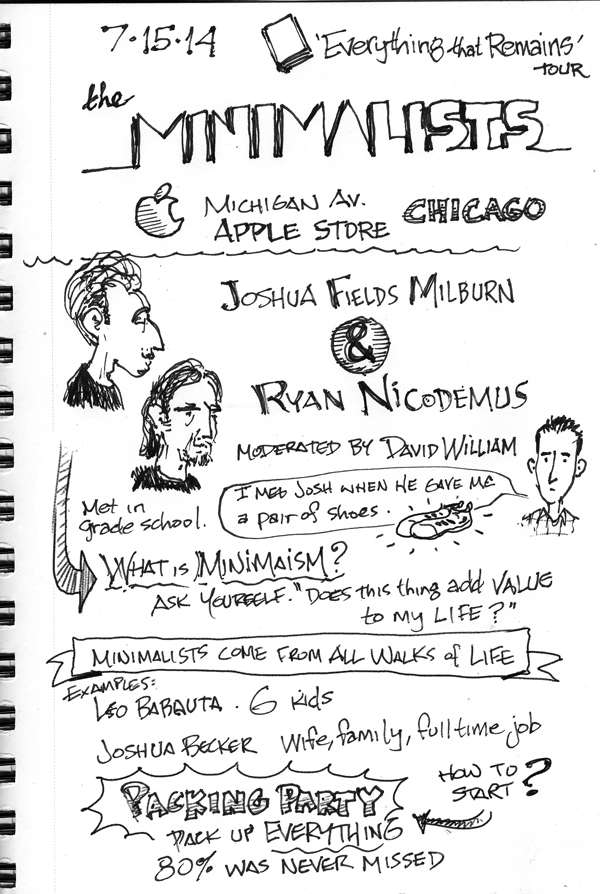 7·15·14
'Everything that Remains'
TOUR
the
MINIMALISTS
MICHIGAN AV.
APPLE STORE
CHICAGO
JOSHUA FIELDS MILBURN
&
RYAN NICODEMUS
MODERATED BY DAVID WILLIAM
I MET JOSH WHEN HE GAVE ME
a pair of shoes.
Met in
grade school.
WHAT IS MINIMAISM?
ASK YOURSELF. "DOES this thing add VALUE
to my LIFE?"
MINIMALISTS COME FROM ALL WALKS of LIFE
EXAMPLES:
LEO BABAUTA · 6 kids
JOSHUA BECKER Wife, family, full time job
PACKING PARTY
HOW TO
START?
PACK UP EVERYTHING
80% WAS NEVER MISSED